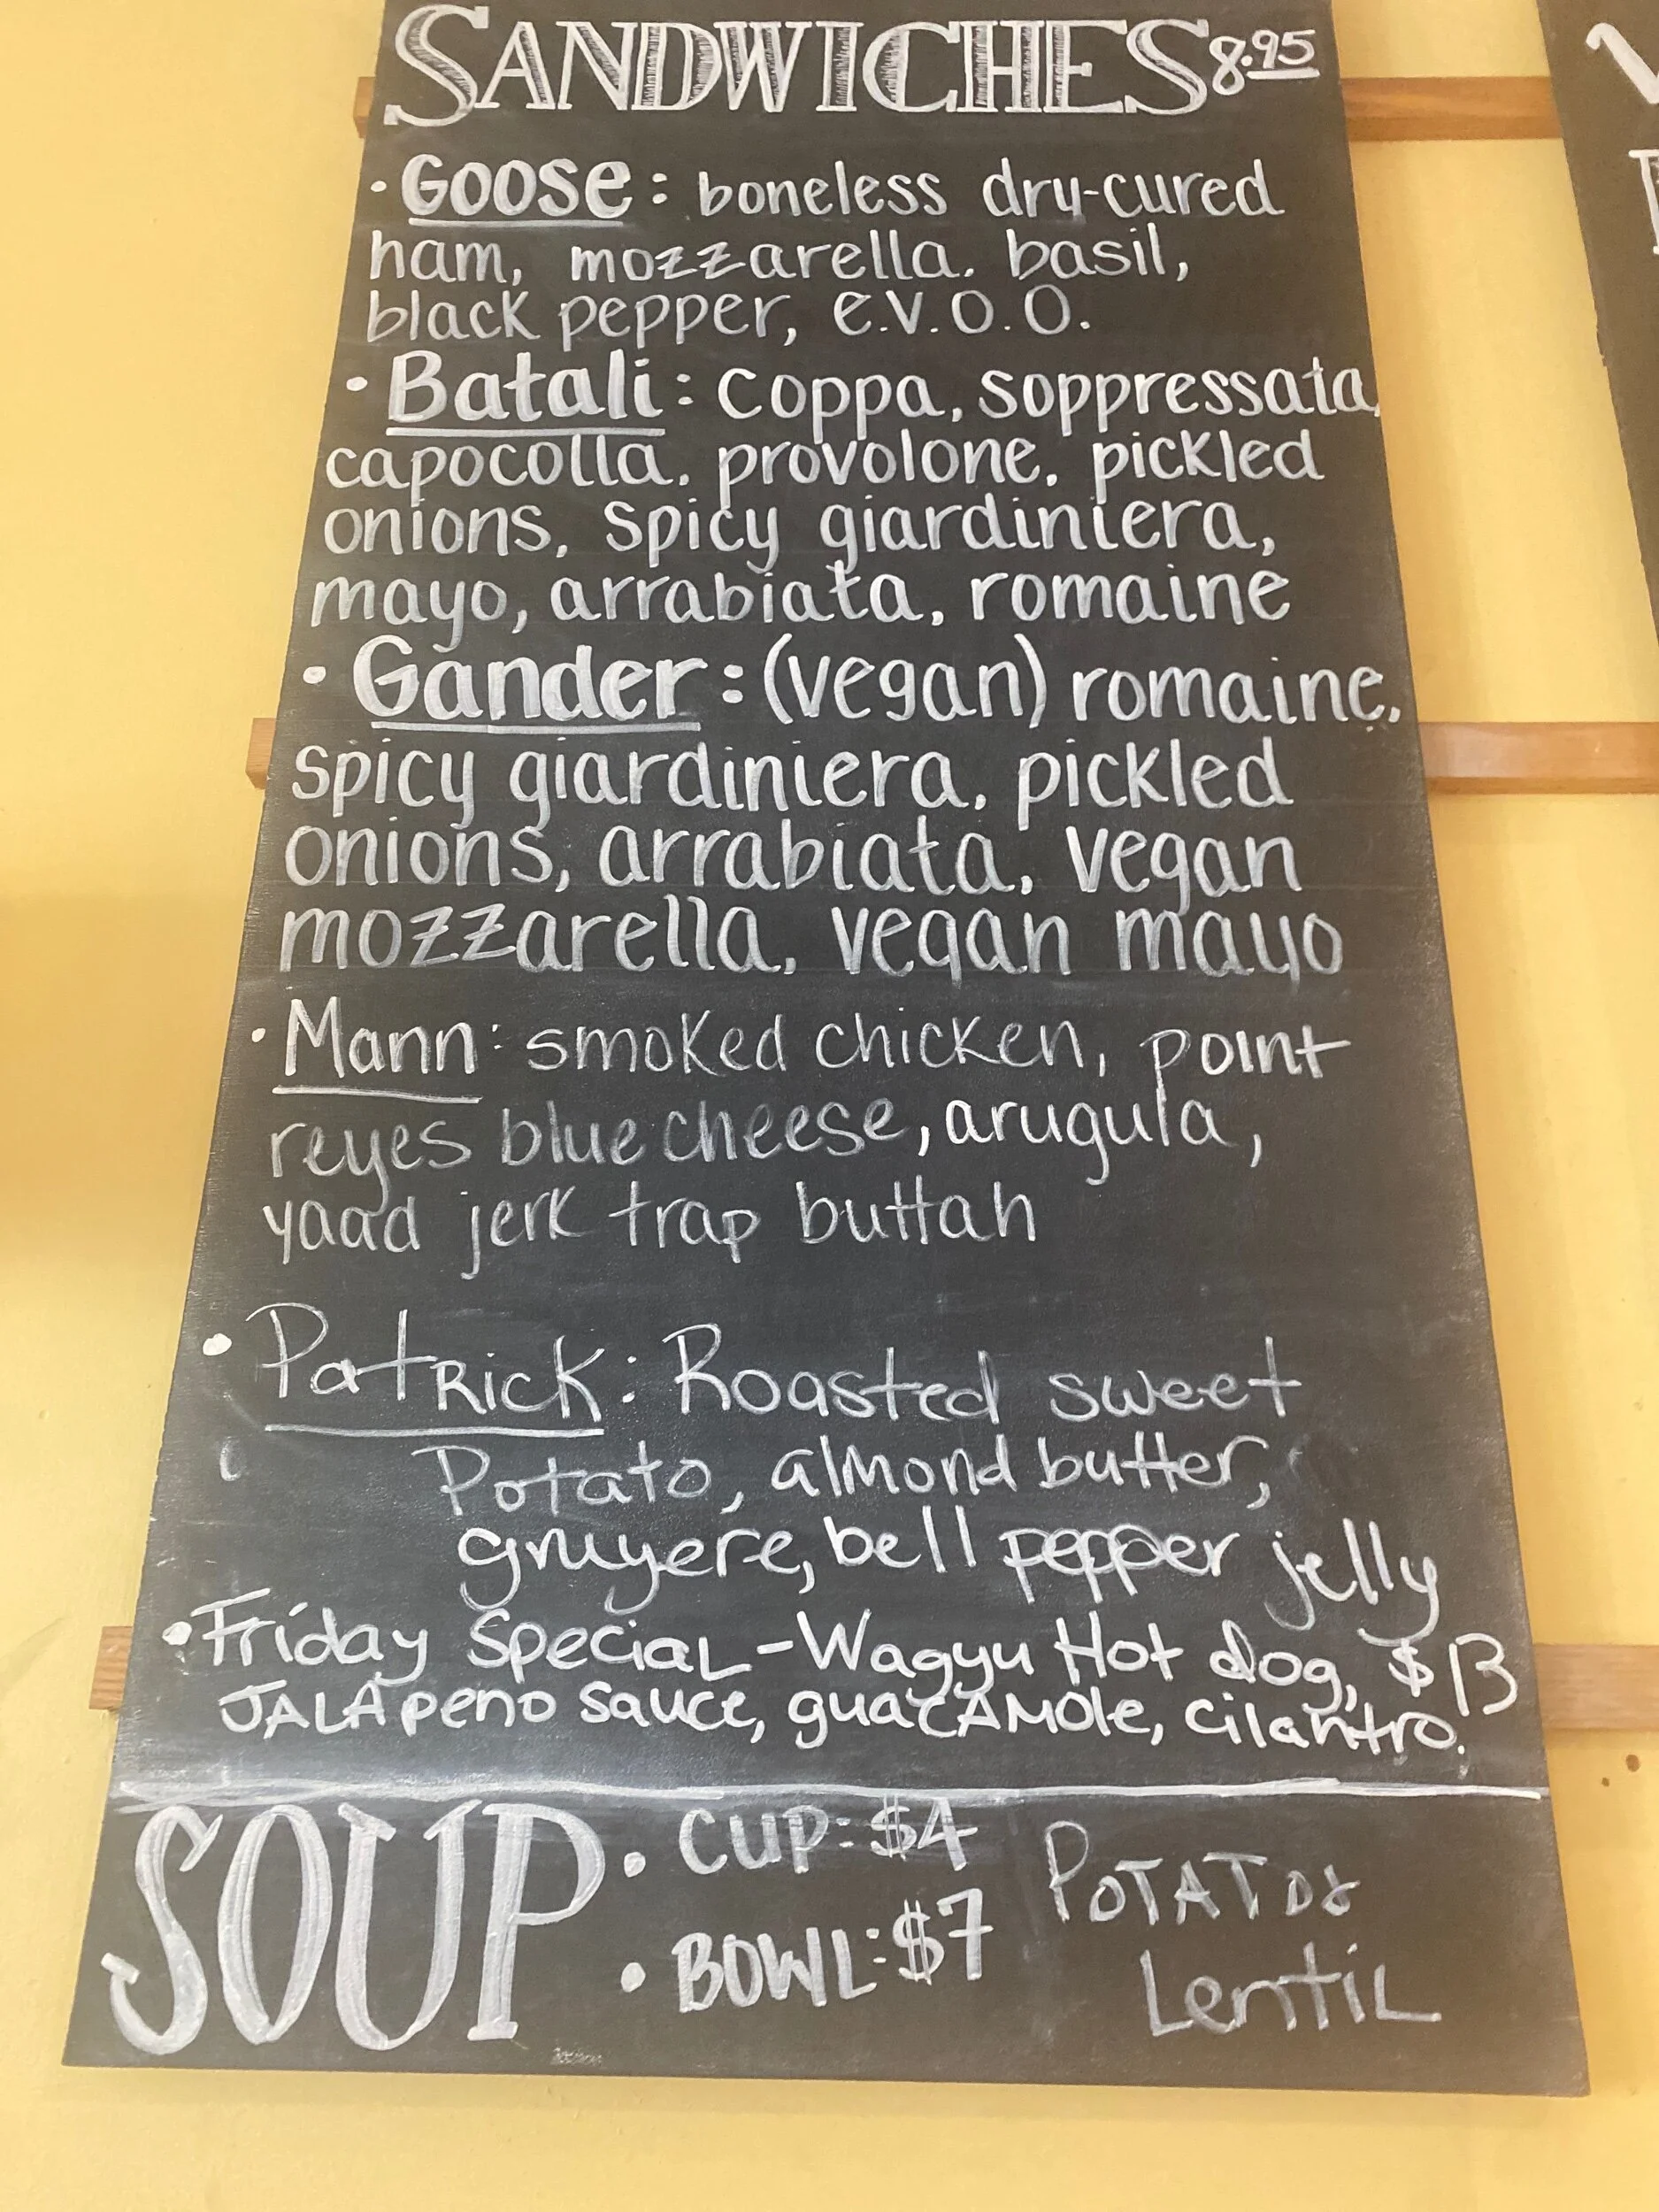 SANDWICHES 8.95
• GOOSE: boneless dry-cured
ham, mozzarella, basil,
black pepper, e.v.o.o.
• Batali: coppa, soppressata,
capocolla, provolone, pickled
onions, spicy giardiniera,
mayo, arrabiata, romaine
• Gander: (vegan) romaine,
spicy giardiniera, pickled
onions, arrabiata, vegan
mozzarella, vegan mayo
• Mann: smoked chicken, point
reyes blue cheese, arugula,
yaad jerk trap buttah
• Patrick: Roasted sweet
Potato, almond butter,
gruyere, bell pepper jelly
• Friday Special - Wagyu Hot dog, $13
JALAPeno sauce, guacAMOle, cilantro.
SOUP • CUP: $4
• BOWL: $7
POTATO &
Lentil